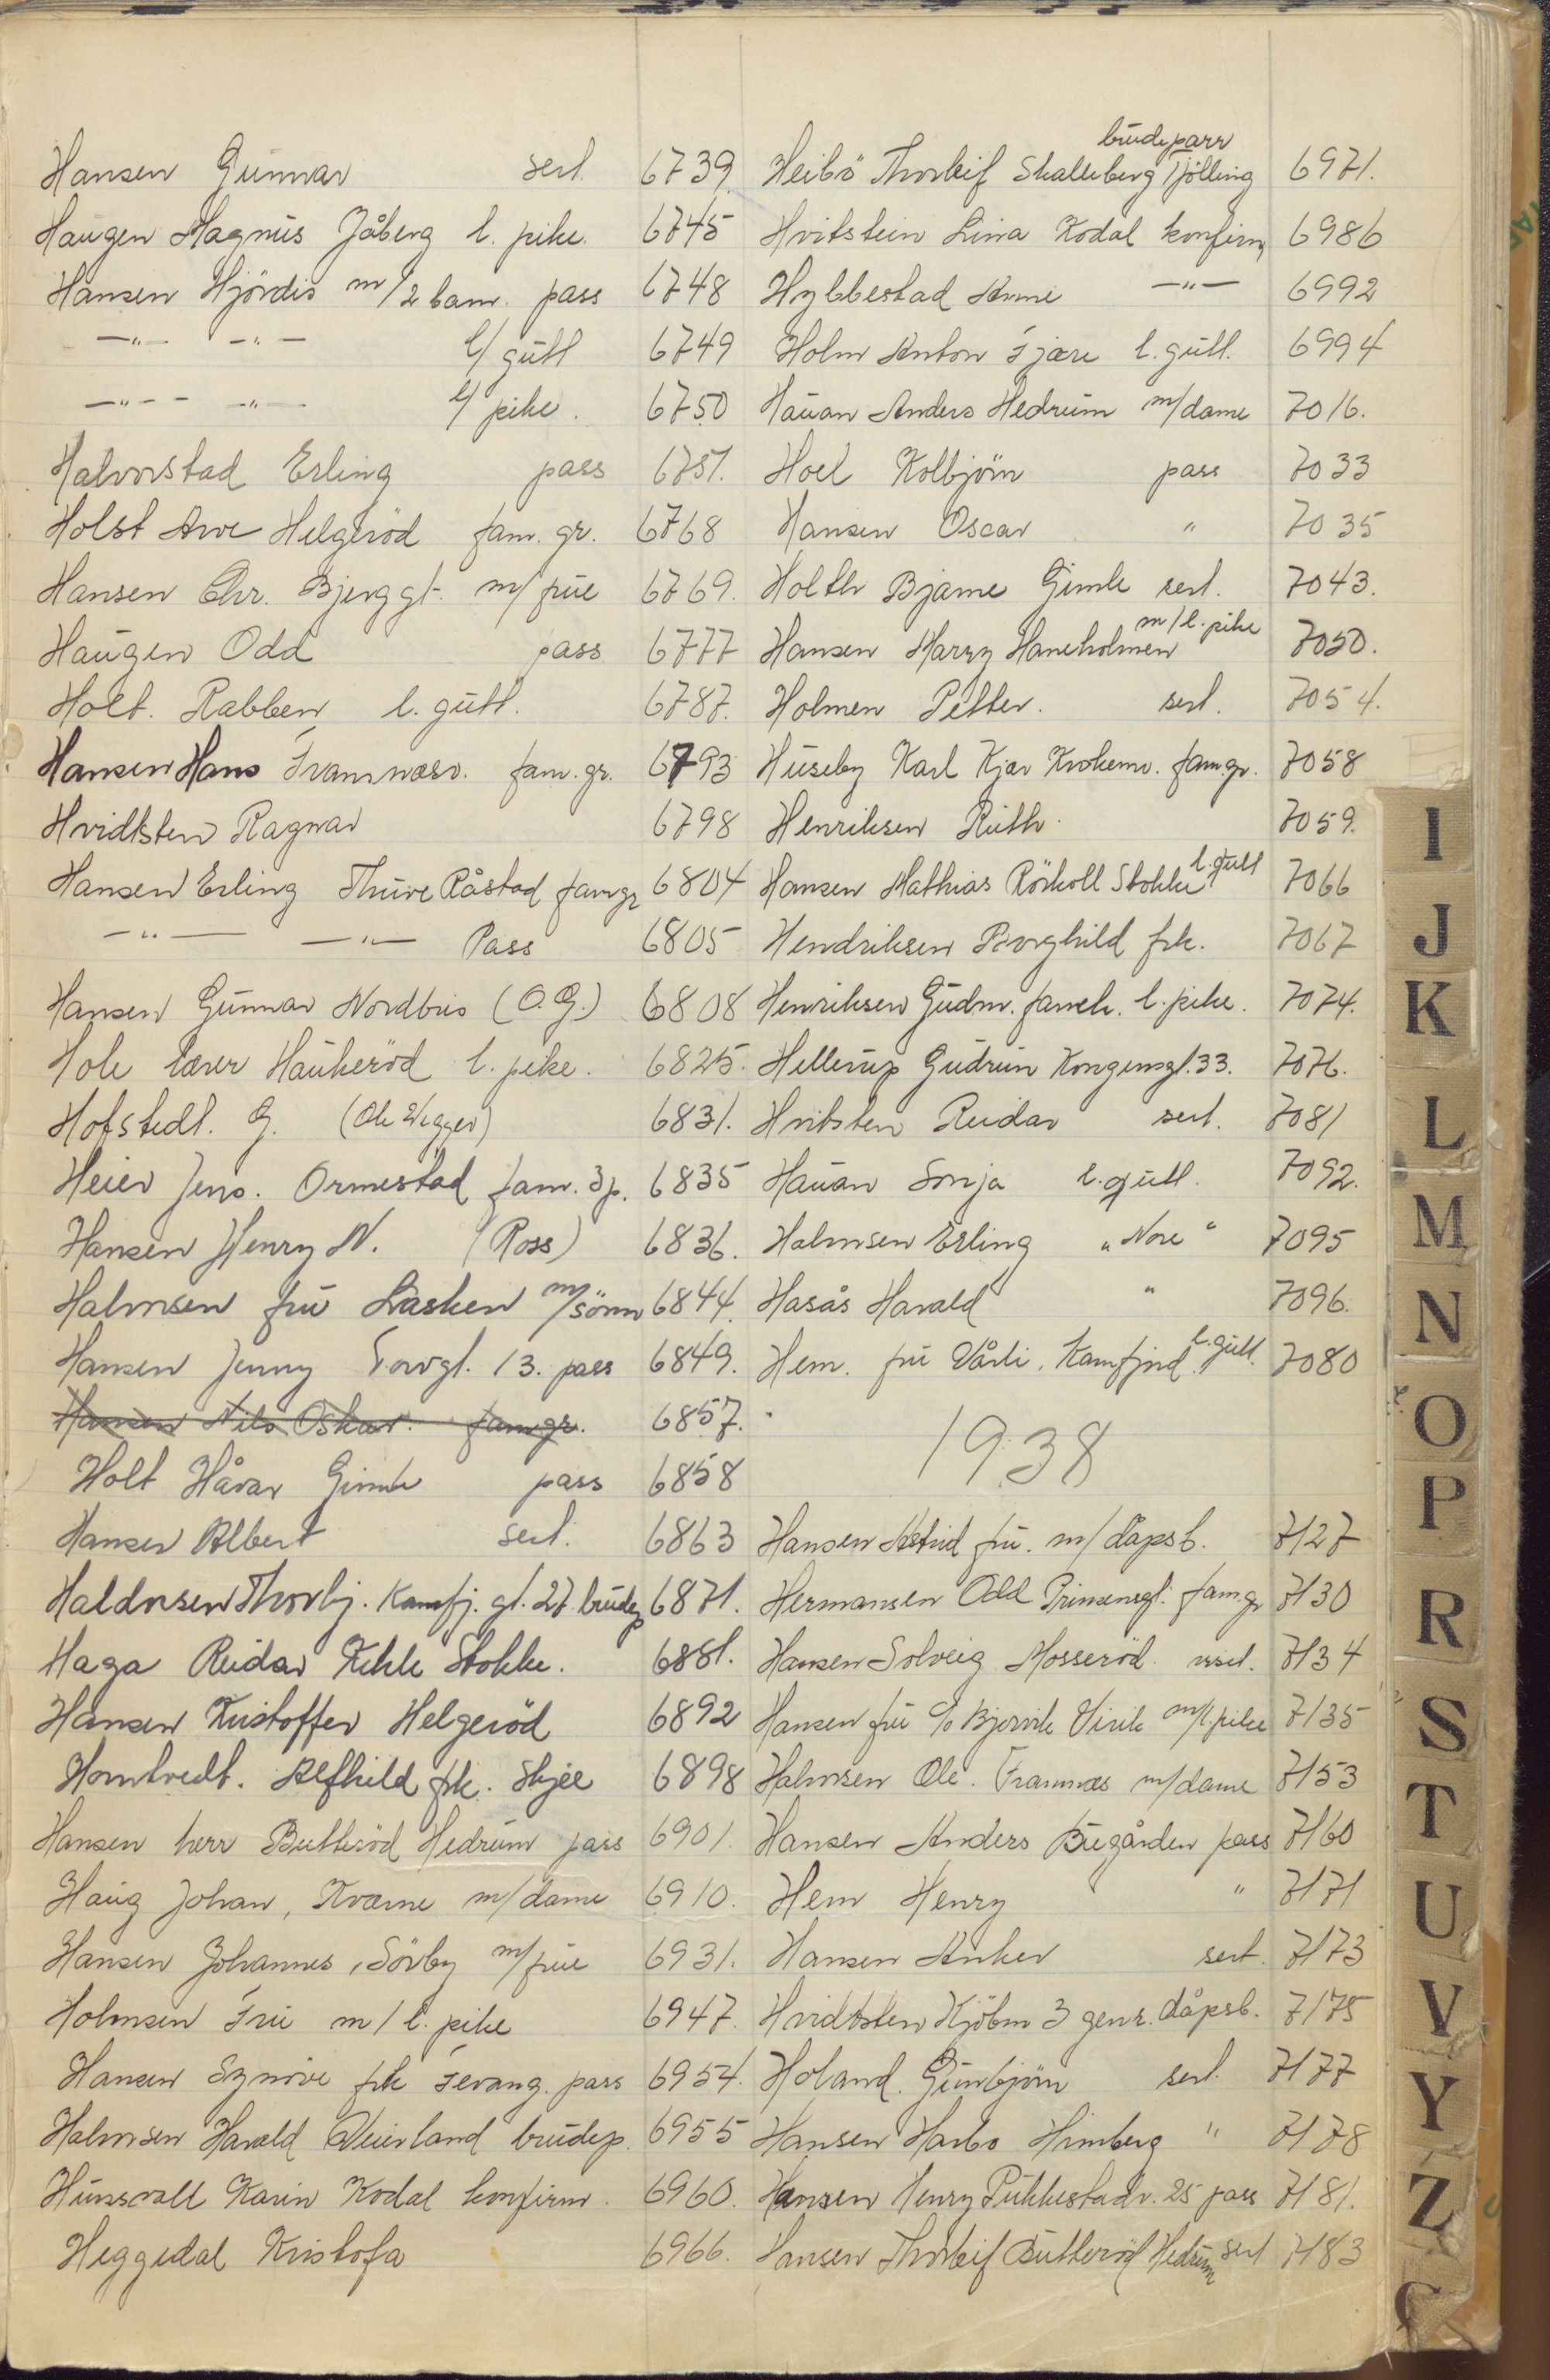 Hansen Gunnar serl. 6739
Haugen Magnus Jåberg l. pike. 6745
Hansen Hjördis m/2 barn. pass 6748
—"— —"— l/ gutt 6749
—"— —"— l/ pike. 6750
Halvorstad Erling pass 6751.
Holst Arve Helgeröd fam. gr. 6768
Hansen Chr. Bjerggt. m/ frue 6769.
Haugen Odd pass 6777
Holt. Rabben l. gutt. 6787.
Hansen Hans Framnæsv. fam. gr. 6793
Hvidtsten Ragnar 6798
Hansen Erling Thure Råstad famgr 6804
—"— —"— Pass 6805
Hansen Gunnar Nordbris (O.G.) 6808
Hole lærer Haukeröd l. pike. 6825.
Hofstedt. G. (Ole Wegger) 6831.
Heier Jens. Ormestad fam. 3p. 6835
Hansen Henry N. (Ross) 6836.
Halvorsen fru Løsken m/sönn 6844.
Hansen Jenny Torvgt. 13. pass 6849.
Hansen Nils Oskar. famgr. 6857.
Holt Håvar Gimle pass 6858
Hansen Albert serl. 6863
Haldorsen Thorbj. Kamfj. gt. 27 brudep 6871.
Haga Reidar Fekle Stokke. 6881.
Hansen Kristoffer Helgeröd 6892
Homtvedt. Alfhild frk. Skjee 6898
Hansen herr Butteröd Hedrum pass 6901.
Haug Johan, Kværne m/dame 6910.
Hansen Johannes, Sörby m/frue 6931.
Holmsen Fru m/ l. pike 6947.
Hansen Synnöve frk Fevang. pass 6954.
Halvorsen Harald Weierland brudep. 6955
Hunsvall Karin Kodal konfirm. 6960.
Heggedal Kristofa 6966.
brudeparr
Heibö Thorleif Skalleberg Tjölling 6971.
Hvitstein Lina Kodal konfirm 6986
Hybbestad Anne —"— 6992
Holm Anton Fjære l. gutt. 6994
Hauan Anders Hedrum m/dame 7016.
Hoel Kolbjörn pass 7033
Hansen Oscar " 7035
Holth Bjarne Gimle serl. 7043.
m/l. pike
Hansen Harry Haneholmen 7050.
Holmen Petter. serl. 7054.
Huseby Karl Kjær Krokemo. fam.gr. 7058
Henriksen Ruth. 7059.
Hansen Mathias Rörkoll Stokke l. gutt 7066
Hendriksen Borghild frk. 7067
Henriksen Gudm. fameh. l. pike. 7074.
Hellerup Gudrun Kongensgt. 33. 7076.
Hvitsten Reidar serl. 7081
Hauan Sonja l. gutt. 7092.
Halvorsen Erling "Nore" 7095
Hasås Harald " 7096.
Hem. fru Vårli, Kamfjord l. gutt. 7080
1938
Hansen Astrid fru. m/dåpsb. 7127
Hermansen Odd Prinsensgt. fam.gr 7130
Hansen Solveig Mosseröd. serl. 7134
Hansen fru c/o Bjorvik Virik m/l pike 7135
Halvorsen Ole. Framnæs m/dame 7153
Hansen Anders Bugården pass 7160
Hem Henry " 7171
Hansen Anker serl. 7173
Hvidtsten Kjöbm 3 gener. dåpsb. 7175
Holand. Gunbjörn serl. 7177
Hansen Harbo Himberg " 7178
Hansen Henry Pukkestadv. 25 pass 7181.
Hansen Thorleif Butteröd Hedrum serl 7183
I
J
K
L
M
N
O
P
R
S
T
U
V
Y
Z